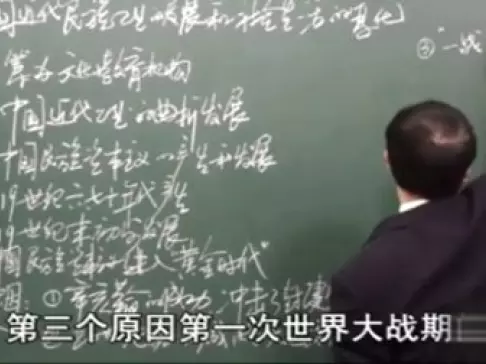 国近代民族工业发展和社会生活的变化
③"一战
筹办文化教育机构
中国近代工业的曲折发展
中国民族资本主义的产生和发展
19世纪六七十年代产生
19世纪末初步发展
国民族资本主义进入"黄金时代"
因：①辛亥革命的推动，冲击了封建
第三个原因第一次世界大战期